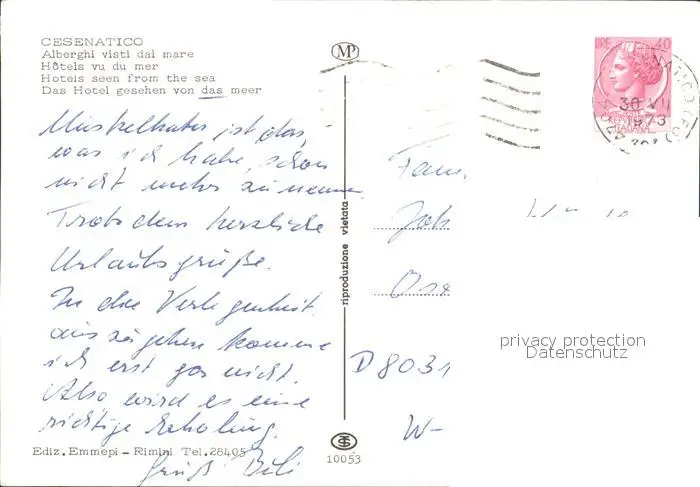 CESENATICO
Alberghi visti dal mare
Hôtels vu du mer
Hotels seen from the sea
Das Hotel gesehen von das meer
Muskelkater ist das,
was ich habe, schon
nicht mehr zu nennen.
Trotzdem herzliche
Urlaubsgrüße.
In die Verlegenheit
auszugehen komme
ich erst gar nicht.
Also wird es eine
richtige Erholung.
Gruß
Ediz. Emmepi - Rimini Tel. 28405
riproduzione vietata
MP
10053
LIRE 40
30 VII
1973
ITALIANA
Fam.
Joh
D 8031
W-
privacy protection
Datenschutz